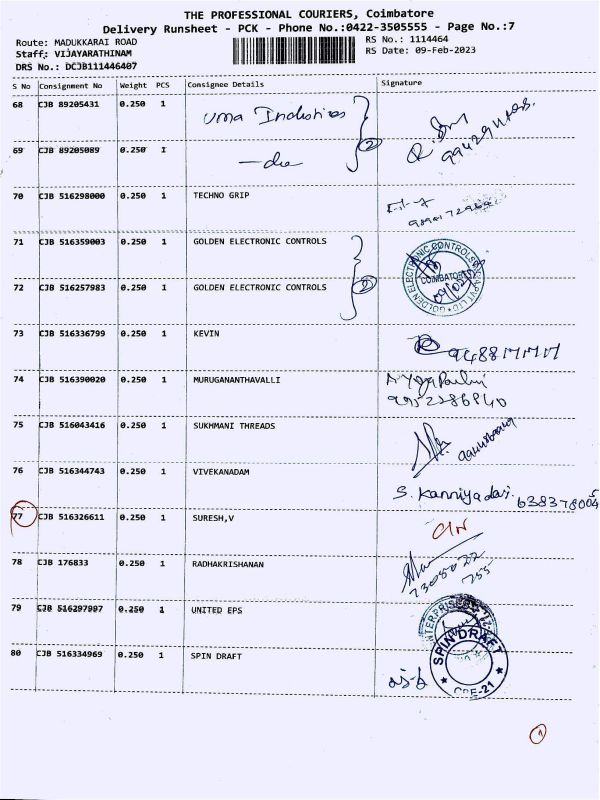 THE PROFESSIONAL COURIERS, Coimbatore
Delivery Runsheet - PCK - Phone No.:0422-3505555 - Page No.:7
Route: MADUKKARAI ROAD
Staff: VIJAYARATHINAM
DRS No.: DCJB111446407
RS No.: 1114464
RS Date: 09-Feb-2023
S No Consignment No Weight PCS Consignee Details Signature
68 CJB 89205431 0.250 1 Uma Industries
69 CJB 89205089 0.250 1 -do 2
70 CJB 516298000 0.250 1 TECHNO GRIP
71 CJB 516359003 0.250 1 GOLDEN ELECTRONIC CONTROLS
72 CJB 516257983 0.250 1 GOLDEN ELECTRONIC CONTROLS 2
GOLDEN ELECTRONIC CONTROLS
COIMBATORE
73 CJB 516336799 0.250 1 KEVIN
74 CJB 516390020 0.250 1 MURUGANANTHAVALLI
9952286840
75 CJB 516043416 0.250 1 SUKHMANI THREADS
76 CJB 516344743 0.250 1 VIVEKANADAM S. Kanniyadasi
77 CJB 516326611 0.250 1 SURESH,V
78 CJB 176833 0.250 1 RADHAKRISHANAN
7305022
755
79 CJB 516297997 0.250 1 UNITED EPS
80 CJB 516334969 0.250 1 SPIN DRAFT SPIN DRAFT
CBE-21
1